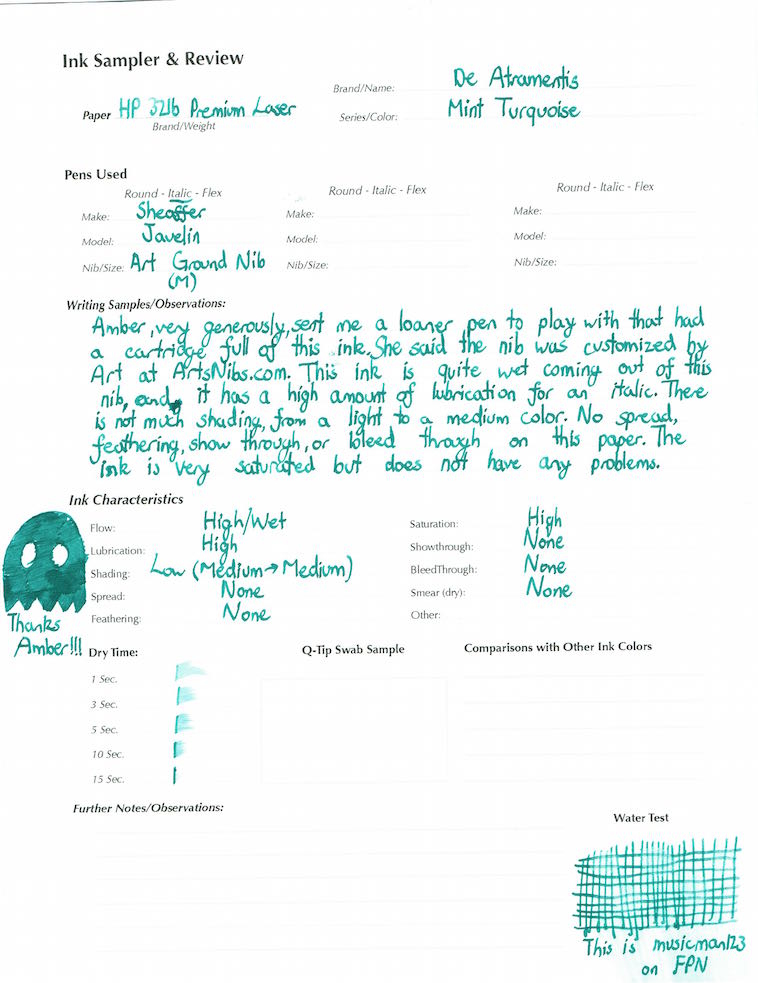 Ink Sampler & Review
Paper HP 32lb Premium Laser
Brand/Weight
Brand/Name: De Atramentis
Series/Color: Mint Turquoise
Pens Used
Round - Italic - Flex
Make: Sheaffer
Model: Javelin
Nib/Size: Art Ground Nib
(M)
Round - Italic - Flex
Make:
Model:
Nib/Size:
Round - Italic - Flex
Make:
Model:
Nib/Size:
Writing Samples/Observations:
Amber, very generously, sent me a loaner pen to play with that had
a cartridge full of this ink. She said the nib was customized by
Art at ArtsNibs.com. This ink is quite wet coming out of this
nib, and it has a high amount of lubrication for an italic. There
is not much shading, from a light to a medium color. No spread,
feathering, show through, or bleed through on this paper. The
ink is very saturated but does not have any problems.
Ink Characteristics
Flow: High/Wet
Lubrication: High
Shading: Low (Medium→Medium)
Spread: None
Feathering: None
Saturation: High
Showthrough: None
BleedThrough: None
Smear (dry): None
Other:
Thanks
Amber!!!
Dry Time:
1 Sec.
3 Sec.
5 Sec.
10 Sec.
15 Sec.
Q-Tip Swab Sample
Comparisons with Other Ink Colors
Further Notes/Observations:
Water Test
This is musicman123
on FPN